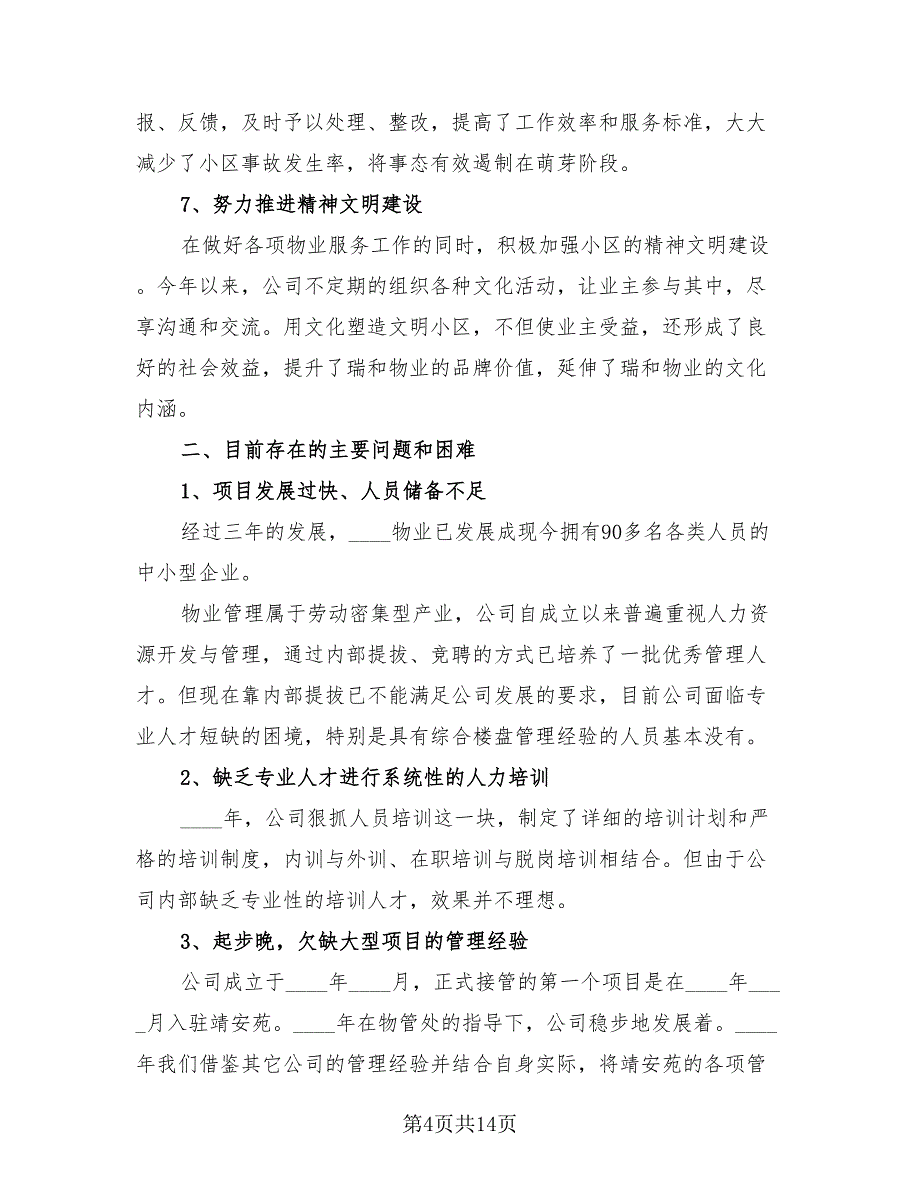 报、反馈，及时予以处理、整改，提高了工作效率和服务标准，大大
减少了小区事故发生率，将事态有效遏制在萌芽阶段。
7、努力推进精神文明建设
在做好各项物业服务工作的同时，积极加强小区的精神文明建设
。今年以来，公司不定期的组织各种文化活动，让业主参与其中，尽
享沟通和交流。用文化塑造文明小区，不但使业主受益，还形成了良
好的社会效益，提升了瑞和物业的品牌价值，延伸了瑞和物业的文化
内涵。
二、目前存在的主要问题和困难
1、项目发展过快、人员储备不足
经过三年的发展，____物业已发展成现今拥有90多名各类人员的
中小型企业。
物业管理属于劳动密集型产业，公司自成立以来普遍重视人力资
源开发与管理，通过内部提拔、竞聘的方式已培养了一批优秀管理人
才。但现在靠内部提拔已不能满足公司发展的要求，目前公司面临专
业人才短缺的困境，特别是具有综合楼盘管理经验的人员基本没有。
2、缺乏专业人才进行系统性的人力培训
____年，公司狠抓人员培训这一块，制定了详细的培训计划和严
格的培训制度，内训与外训、在职培训与脱岗培训相结合。但由于公
司内部缺乏专业性的培训人才，效果并不理想。
3、起步晚，欠缺大型项目的管理经验
公司成立于____年____月，正式接管的第一个项目是在____年___
_月入驻靖安苑。____年在物管处的指导下，公司稳步地发展着。____
年我们借鉴其它公司的管理经验并结合自身实际，将靖安苑的各项管
第4页共14页